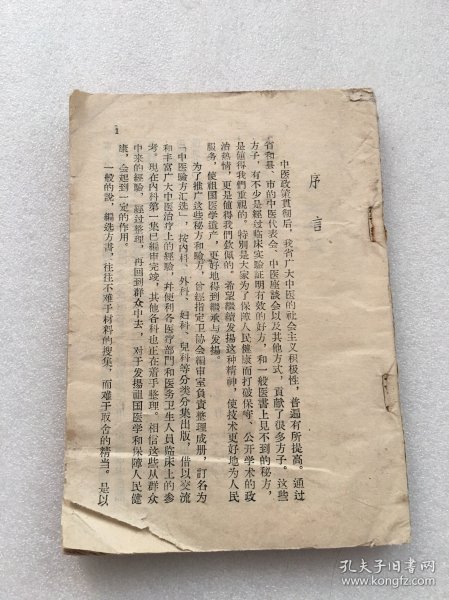 序言
中医政策貫彻后，我省广大中医的社会主义积极性，普遍有所提高。通过
省和县、市的中医代表会、中医座談会以及其他方式，貢献了很多方子。这些
方子，有不少是經过临床实驗証明有效的好方，和一般医書上見不到的秘方，
是値得我們重視的。特别是大家为了保障人民健康而打破保守、公开学术的政
治热情，更是値得我們欽佩的。希望繼續发揚这种精神，使技术更好地为人民
服务，使祖国医学遗产，更好地得到繼承与发揚。
为了推广这些秘方和驗方，曾經指定卫协会編审室負責整理成册，訂名为
「中医驗方汇选」，按內科、外科、妇科、兒科等分类分集出版，借以交流
和丰富广大中医治疗上的經驗，幷便利各医疗部門和医务卫生人員临床上的参
考。現在內科第一集已編审完竣，其他各科也正在着手整理。相信这些从群众
中来的經驗，經过整理，再回到群众中去，对于发揚祖国医学和保障人民健
康，会起到一定的作用。
一般的說，編选方書，往往不难于材料的搜集，而难于取舍的精当。是以
1
孔夫子旧书网
kongfz.com